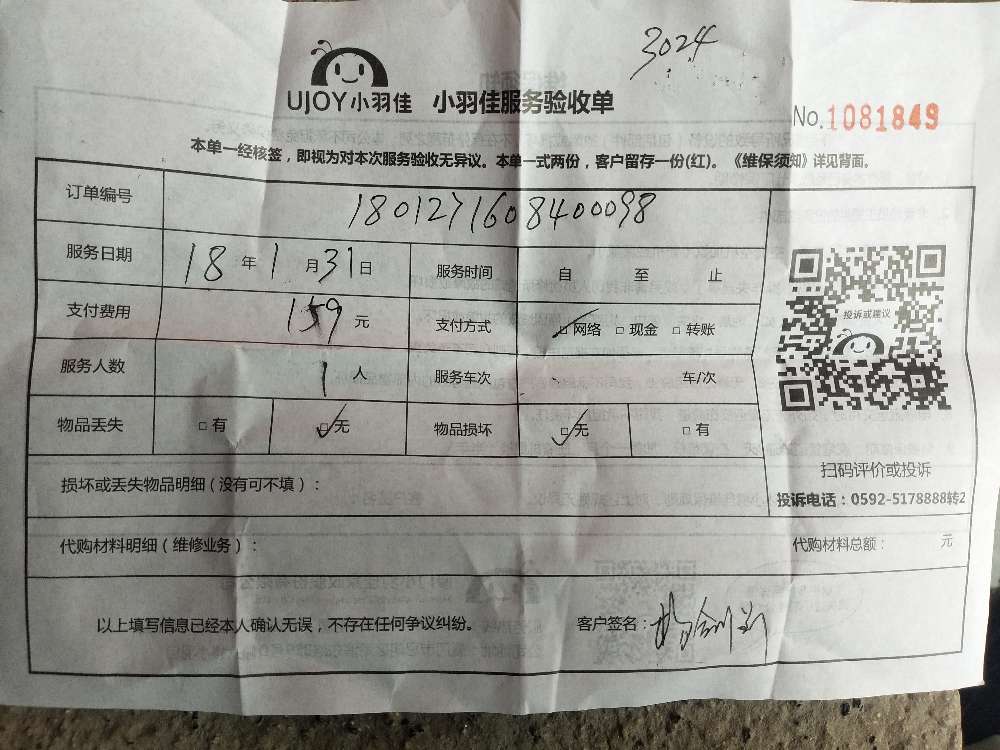 3024
UJOY小羽佳 小羽佳服务验收单
No.1081849
本单一经核签，即视为对本次服务验收无异议。本单一式两份，客户留存一份(红)。《维保须知》详见背面。
订单编号 1801271608400098
服务日期 18年1月31日 服务时间 自 至 止
支付费用 159元 支付方式 ☑网络 □现金 □转账
投诉或建议
服务人数 1人 服务车次 车/次
物品丢失 □有 ☑无 物品损坏 ☑无 □有
扫码评价或投诉
损坏或丢失物品明细（没有可不填）：
投诉电话：0592-5178888转2
代购材料明细（维修业务）： 代购材料总额： 元
以上填写信息已经本人确认无误，不存在任何争议纠纷。 客户签名：